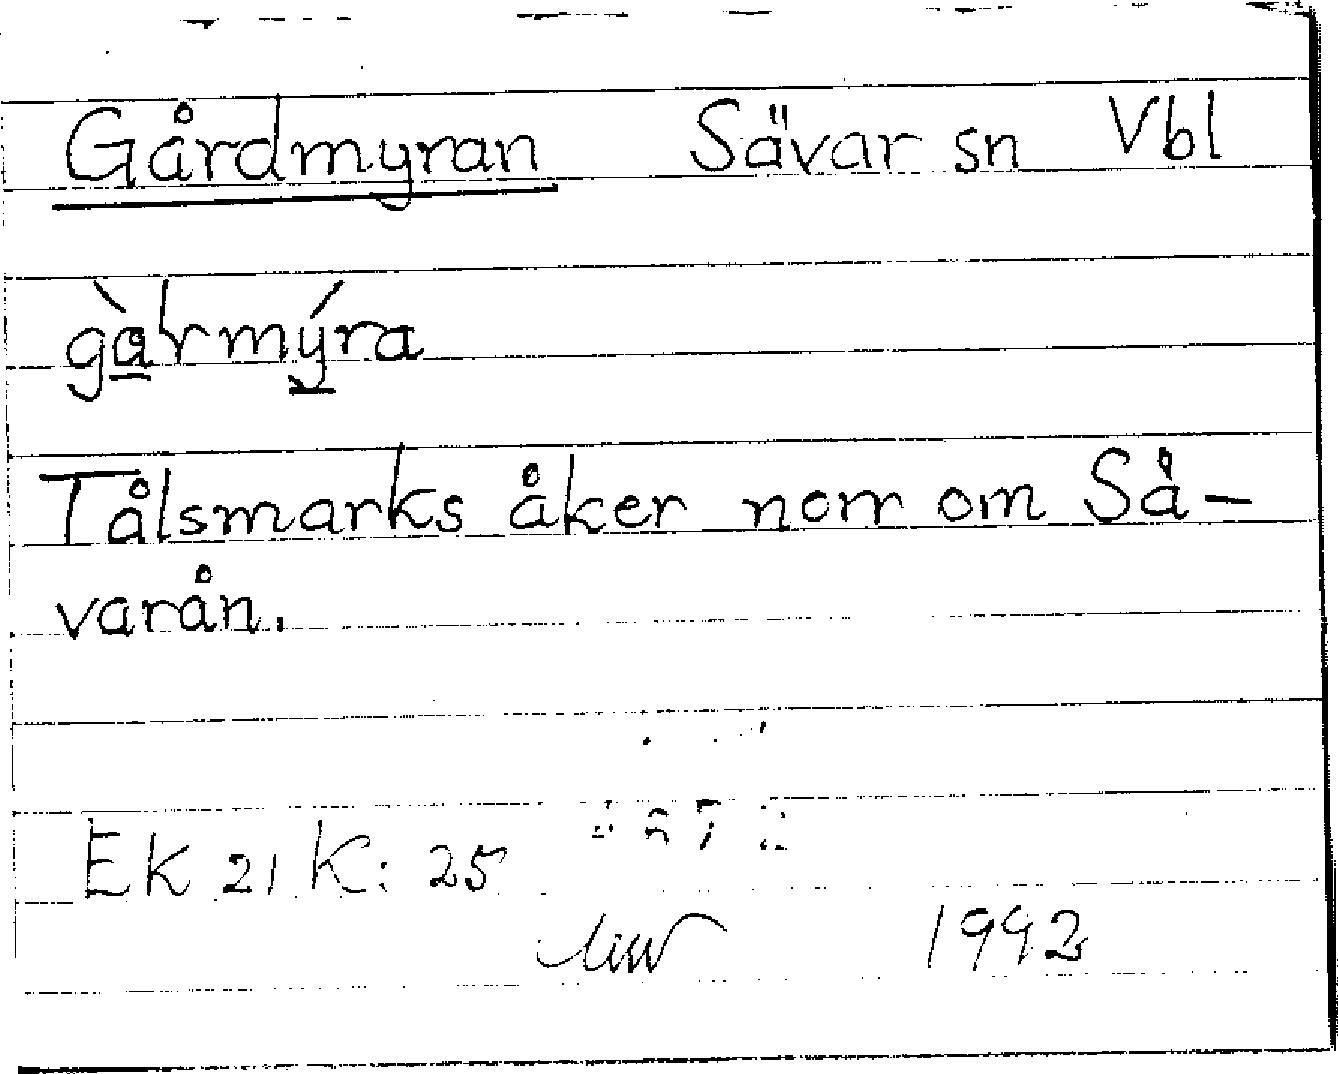 Gårdmyran Sävar sn Vbl
gàrmýra
Tålsmarks åker norr om Sä-
varån.
EK 21 K: 25
1992